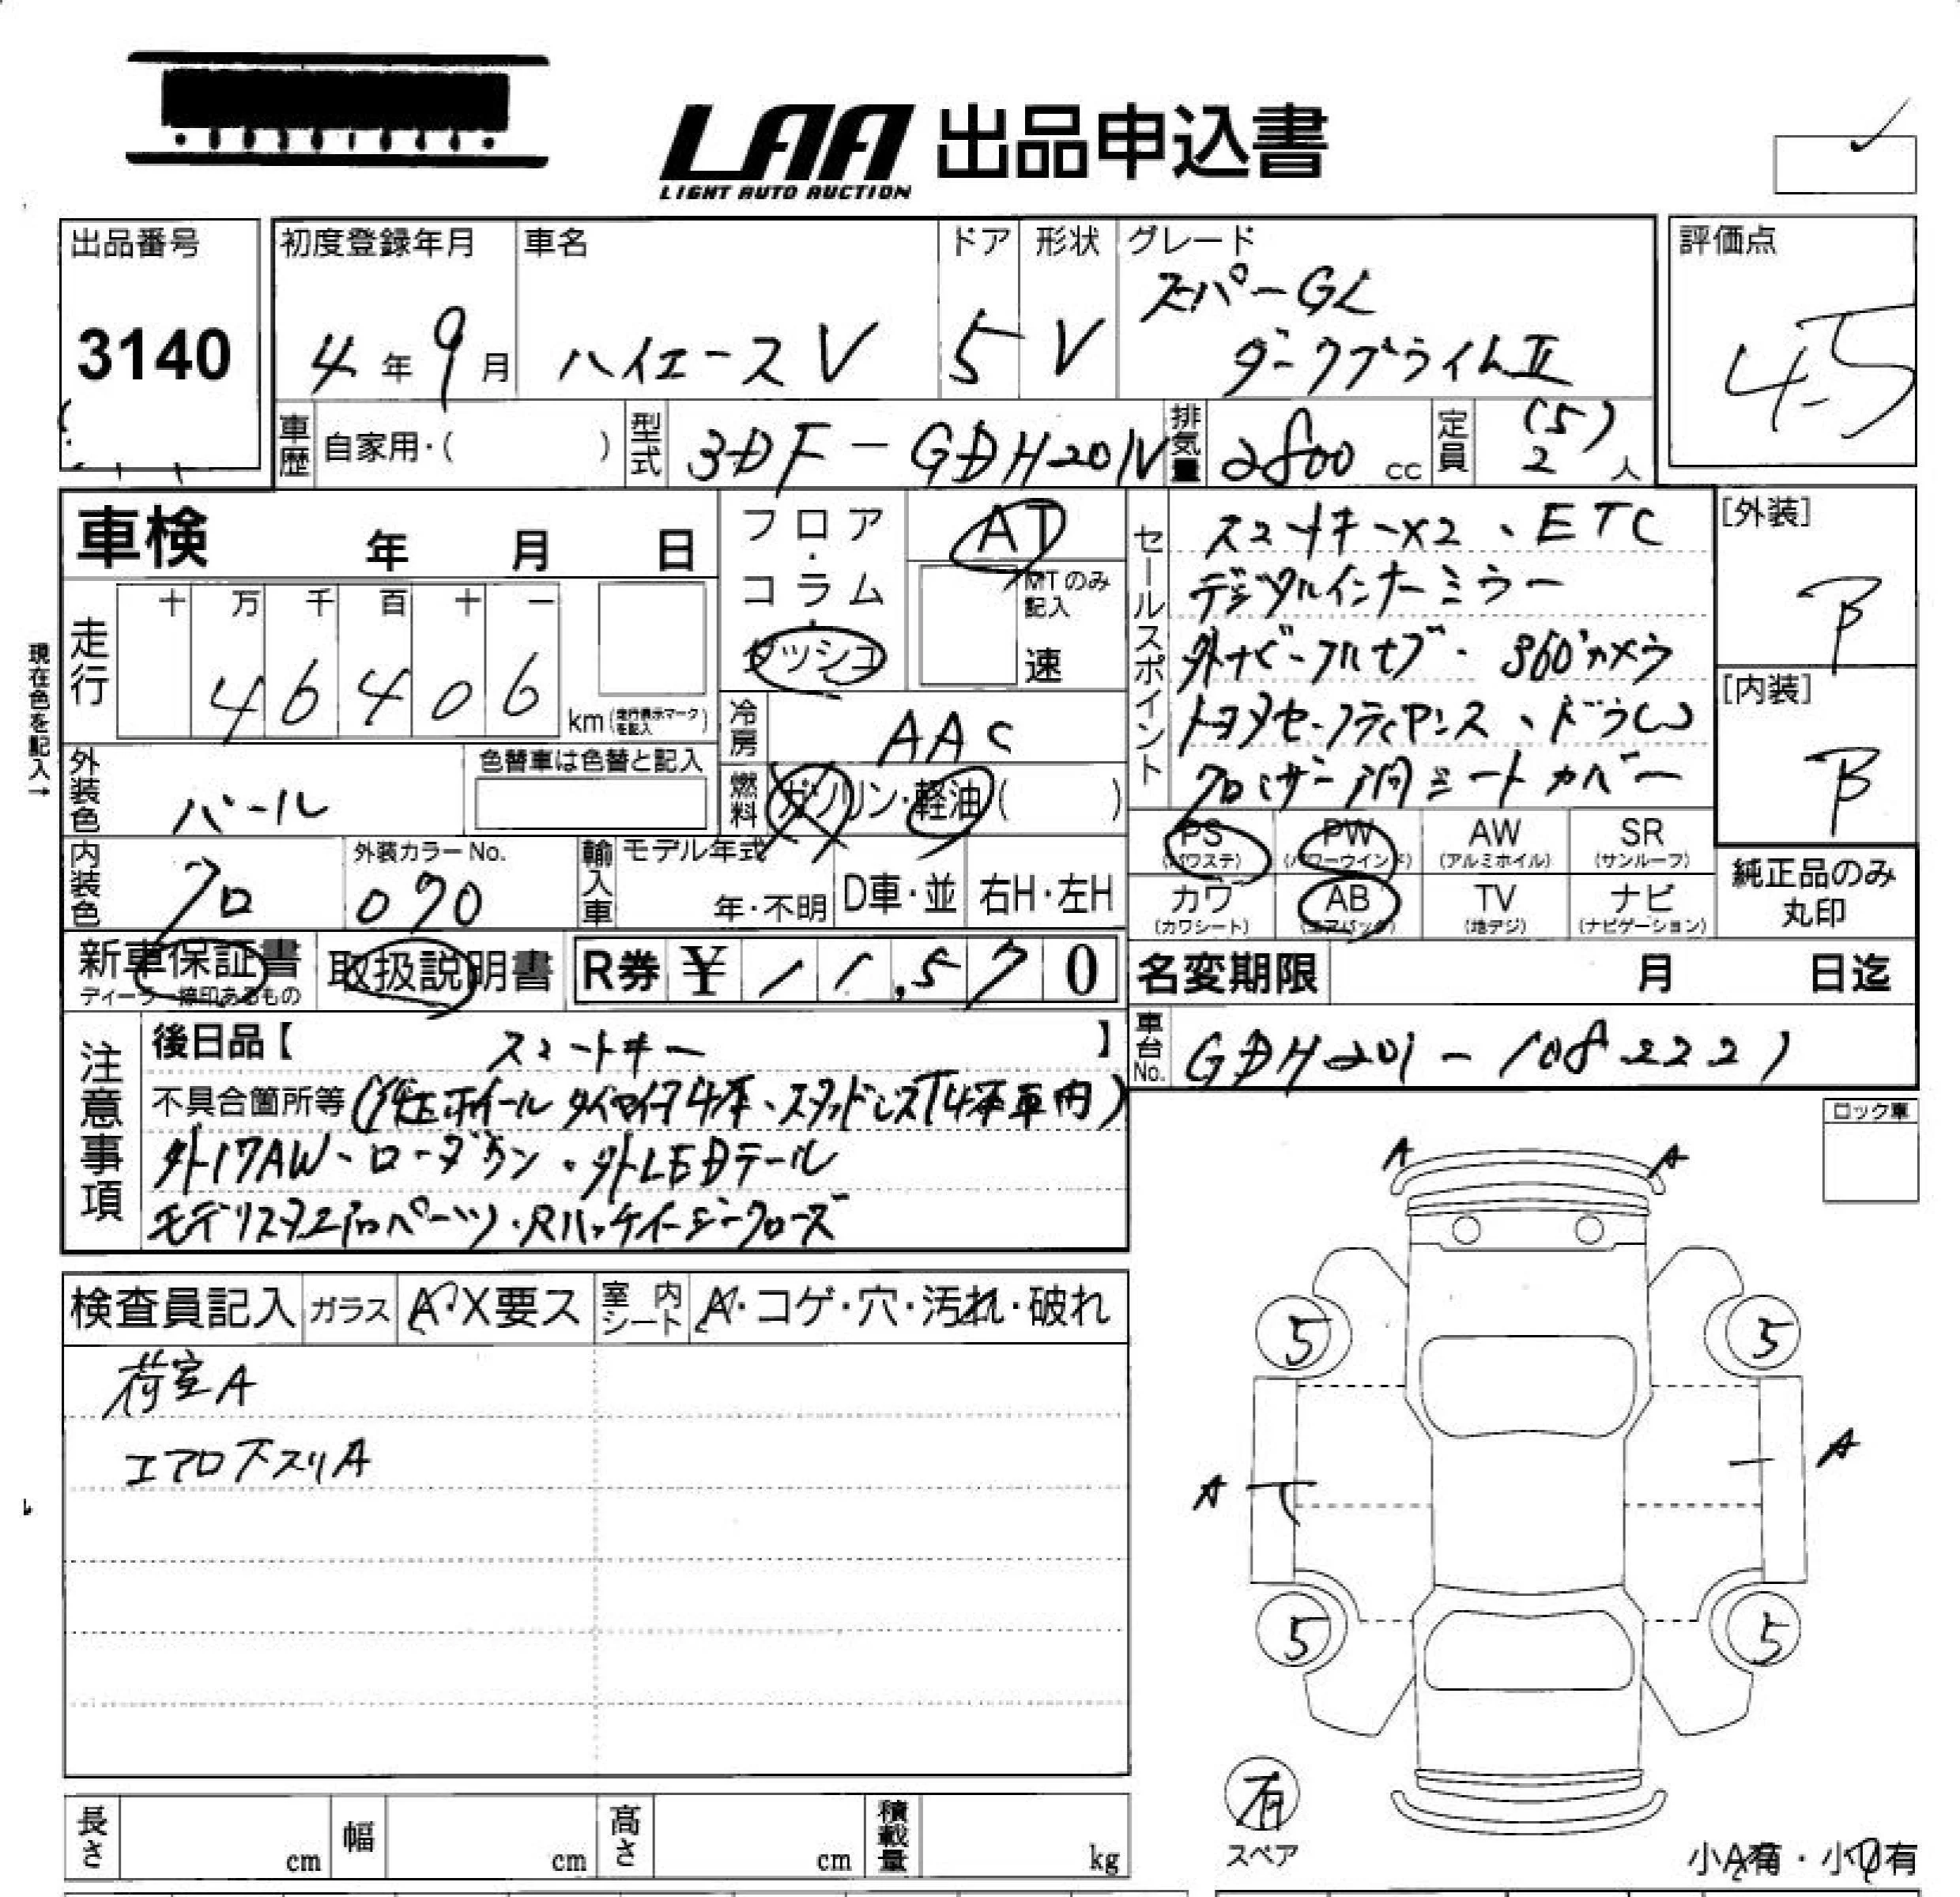 LAA 出品申込書
LIGHT AUTO AUCTION
出品番号
3140
初度登録年月
4年9月
車名
ハイエースV
ドア
5
形状
V
グレード
スーパーGL
ダークプライムⅡ
評価点
4.5
車歴
自家用・( )
型式
3DF-GDH201V
排気量
2800 cc
定員
(5)
2 人
車検 年 月 日
走行
十 万 千 百 十 一
4 6 4 0 6
km (走行表示マークを記入)
現在色を記入→
外装色
パール
色替車は色替と記入
内装色
クロ
外装カラーNo.
070
フロア・コラム・ダッシュ
AT
MTのみ記入
速
冷房
AAC
燃料
ガソリン・軽油( )
輸入車
モデル年式
年・不明
D車・並
右H・左H
セールスポイント
スマートキー×2、ETC
デジタルインナーミラー
外ナビ・フルセグ・360°カメラ
トヨタセーフティセンス、ドラレコ
シートカバー
[外装]
B
[内装]
B
PS
(パワステ)
PW
(パワーウインド)
AW
(アルミホイル)
SR
(サンルーフ)
カワ
(カワシート)
AB
(エアバッグ)
TV
(地デジ)
ナビ
(ナビゲーション)
純正品のみ
丸印
新車保証書
ディーラー捺印あるもの
取扱説明書
R券 ¥ 11,570
名変期限 月 日迄
車台No.
GDH201-1082221
注意事項
後日品【 スマートキー 】
不具合箇所等 (純正ホイール タイヤ付4本、スタッドレスT4本車内)
外17AW、ローダウン・外LEDテール
モデリスタエアロパーツ・Rハッチイージークローズ
ロック車
検査員記入
ガラス
A・X要ス
室内シート
A・コゲ・穴・汚れ・破れ
荷室A
エアロ下スリA
A A
5 5
A A
5 5
有
スペア
小A有・小U有
長さ cm
幅 cm
高さ cm
積載量 kg